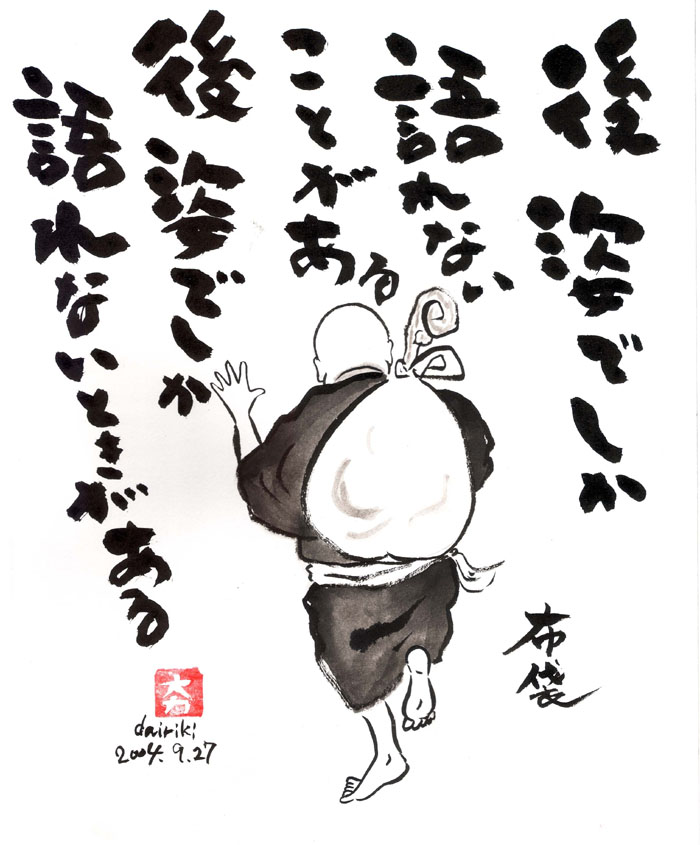 後姿でしか
語れない
ことがある
後姿でしか
語れないときがある
布袋
大力
dairiki
2004.9.27